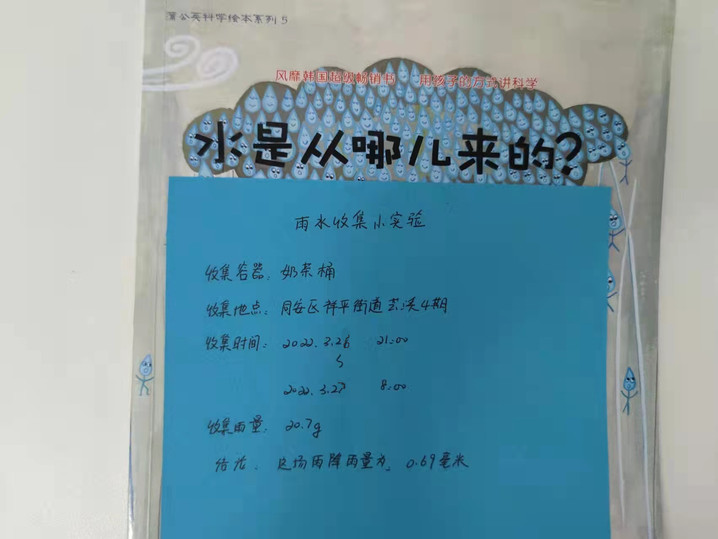 蒲公英科学绘本系列 5
风靡韩国超级畅销书 用孩子的方式讲科学
水是从哪儿来的?
雨水收集小实验
收集容器: 奶茶桶
收集地点: 同安区祥平街道芸溪4期
收集时间: 2022.3.26 21:00
2022.3.27 8:00
收集雨量: 20.7g
结论: 这场雨降雨量为: 0.69毫米